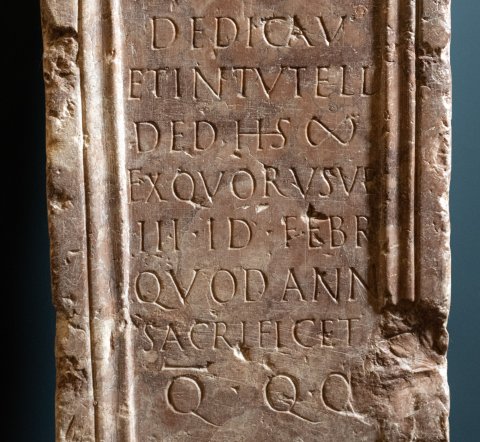 DEDICAV
ET IN TVTELL
DED · HS ∞
EX QVOR VSVR
III · ID · FEBR
QVOD ANN
SACRIFICET
Q̄ · Q · Q